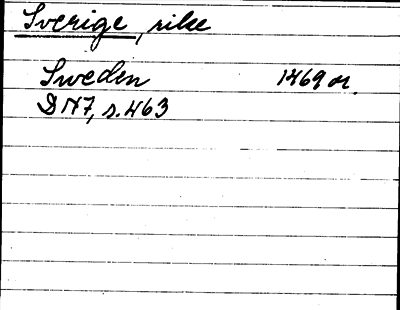 Sverige, rike
Sweden 1469 or.
DN7, s. 463